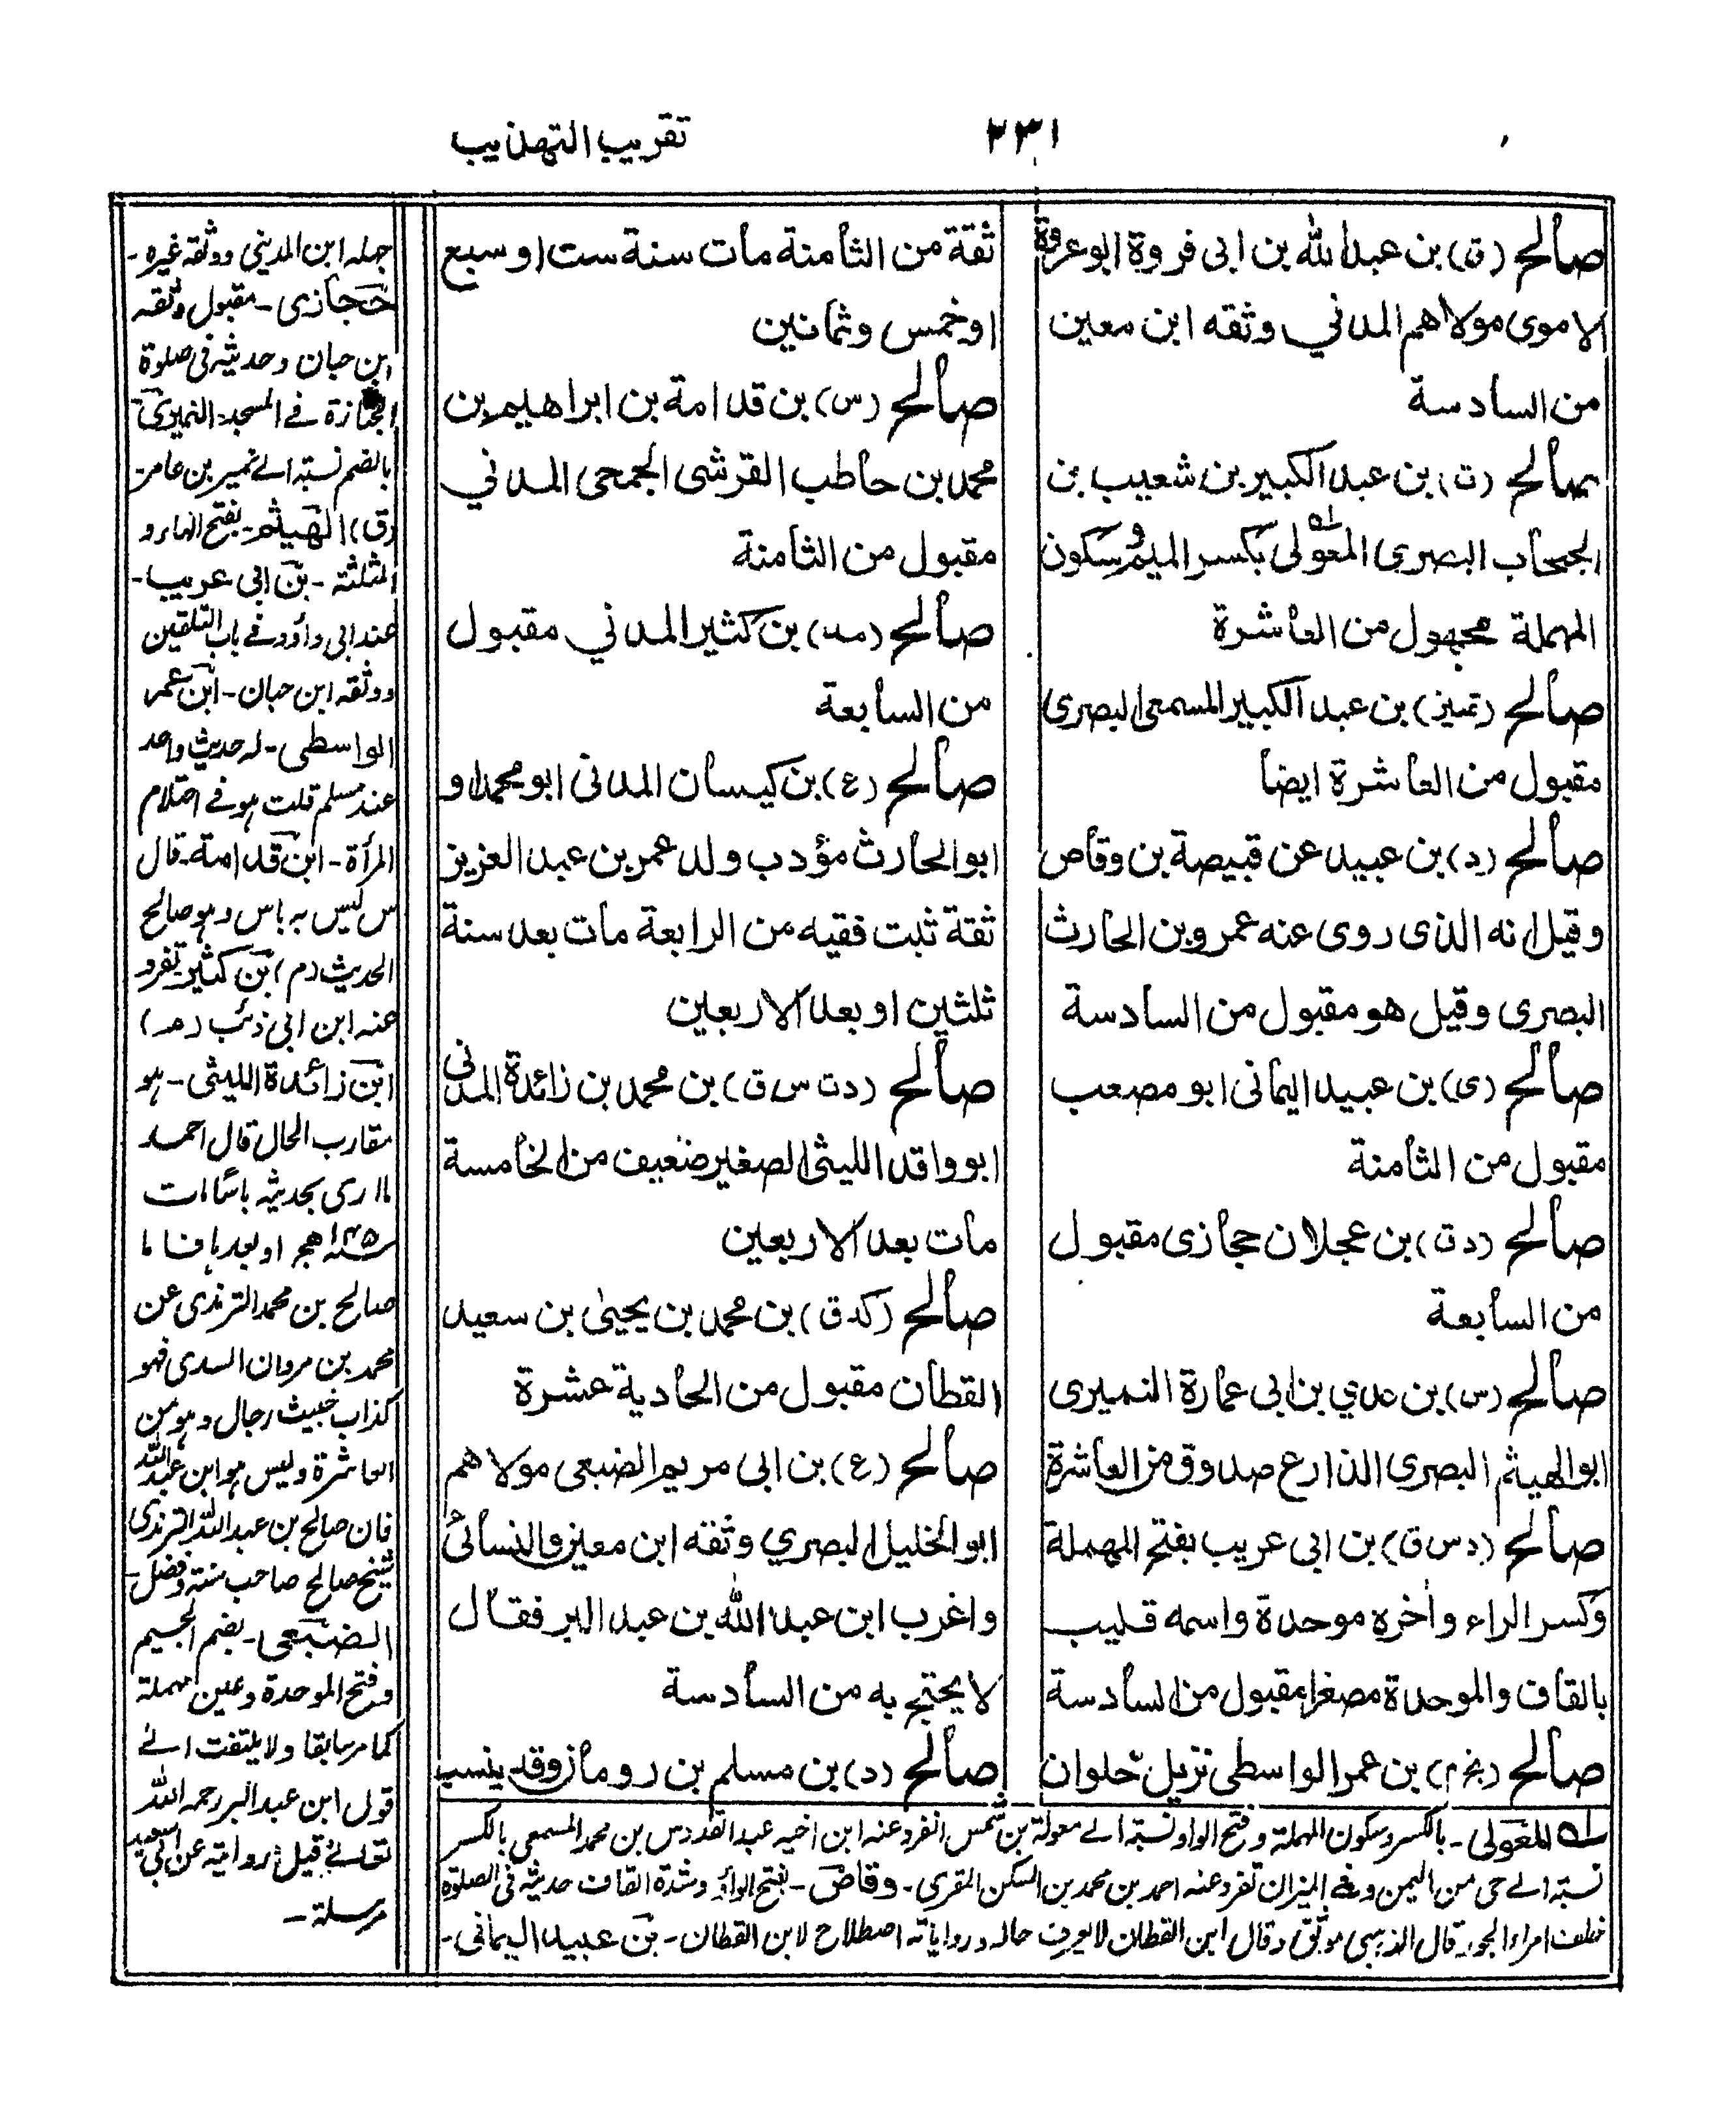 تقريب التهذيب
٢٣١
صالح (ق) بن عبد الله بن ابى فروة ابو عروة
الاموى مولاهم المدني وثقه ابن معين
من السادسة
صالح (ت) بن عبد الكبير بن شعيب بن
الحبحاب البصرى المعولى بكسر الميم وسكون
المهملة مجهول من العاشرة
صالح (تميز) بن عبد الكبير المسمعى البصرى
مقبول من العاشرة ايضا
صالح (د) بن عبيد عن قبيصة بن وقاص
وقيل انه الذى روى عنه عمرو بن الحارث
البصرى وقيل هو مقبول من السادسة
صالح (ى) بن عبيد اليمانى ابو مصعب
مقبول من الثامنة
صالح (د ق) بن عجلان حجازى مقبول
من السابعة
صالح (س) بن عدي بن ابى عمارة النميرى
ابو الهيثم البصرى الذارع صدوق من العاشرة
صالح (د س ق) بن ابى عريب بفتح المهملة
وكسر الراء وأخره موحدة واسمه قليب
بالقاف والموحدة مصغرا مقبول من السادسة
صالح (بخ م) بن عمر الواسطى نزيل حلوان
ثقة من الثامنة مات سنة ست او سبع
اوخمس وثمانين
صالح (س) بن قدامة بن ابراهيم بن
محمد بن حاطب القرشى الجمحى المدني
مقبول من الثامنة
صالح (مد) بن كثير المدني مقبول
من السابعة
صالح (ع) بن كيسان المدنى ابو محمد او
ابو الحارث مؤدب ولد عمر بن عبد العزيز
ثقة ثبت فقيه من الرابعة مات بعد سنة
ثلثين او بعد الاربعين
صالح (د ت س ق) بن محمد بن زائدة المدنى
ابو واقد الليثى الصغير ضعيف من الخامسة
مات بعد الاربعين
صالح (كد ق) بن محمد بن يحيى بن سعيد
القطان مقبول من الحادية عشرة
صالح (ع) بن ابى مريم الضبعى مولاهم
ابو الخليل البصري وثقه ابن معين والنسائى
واغرب ابن عبد الله بن عبد البر فقال
لا يحتج به من السادسة
صالح (د) بن مسلم بن رومان وقد ينسب
جهله ابن المديني ووثقه غيره -
حجازى - مقبول وثقه
ابن حبان وحديثه فى صلوة
الجنازة فے المسجد - النميرى -
بالضم نسبة الے نمير بن عامر -
(ق) الهيثم - بفتح الهاء و
المثلثة - بن ابى عريب -
عند ابى داؤد فے باب التلقين
ووثقه ابن حبان - ابن عمر
الواسطى - له حديث واحد
عند مسلم قلت هو فے احتلام
المرأة - ابن قدامة - قال
س ليس به باس وهو صالح
الحديث (م) بن كثير - تفرد
عنه ابن ابى ذئب (مد)
ابن زائدة الليثى - هو
مقارب الحال قال احمد
ما ارى بحديثه باسا مات
سنة ١٤٥ هجر او بعدها فاما
صالح بن محمد الترمذى عن
محمد بن مروان السدى فهو
كذاب خبيث رجال وهو من
العاشرة وليس هو ابن عبد الله
فان صالح بن عبد الله الترمذى
شيخ صالح صاحب سنة وفضل -
الضبعى - بضم الجيم
وفتح الموحدة وعين مهملة
كما مر سابقا ولا يلتفت الے
قول ابن عبد البر رحمه الله
تعالے قيل روايته عن ابى سعيد
مرسلة -
له المعولى - بالكسر وسكون المهملة وفتح الواو نسبة الے معولة بن شمس انفرد عنه ابن اخيه عبد القدوس بن محمد المسمعى بالكسر
نسبة الے حى من اليمن وفے الميزان تفرد عنه احمد بن محمد بن السكن المقرى - وقاص - بفتح الواو وشدة القاف حديثه فى الصلوة
خلف امراء الجور قال الذهبى موثق وقال ابن القطان لا يعرف حاله ورواياته اصطلاح لابن القطان - بن عبيد اليمانى -